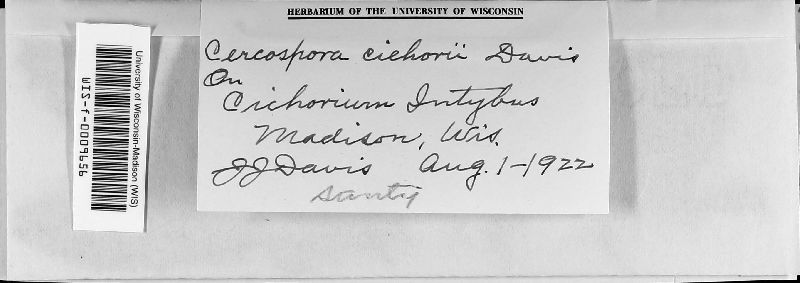 HERBARIUM OF THE UNIVERSITY OF WISCONSIN
Cercospora cichorii Davis
On
Cichorium Intybus
Madison, Wis.
JJ Davis Aug. 1-1922
scanty
University of Wisconsin-Madison (WIS)
WIS-f-0009656